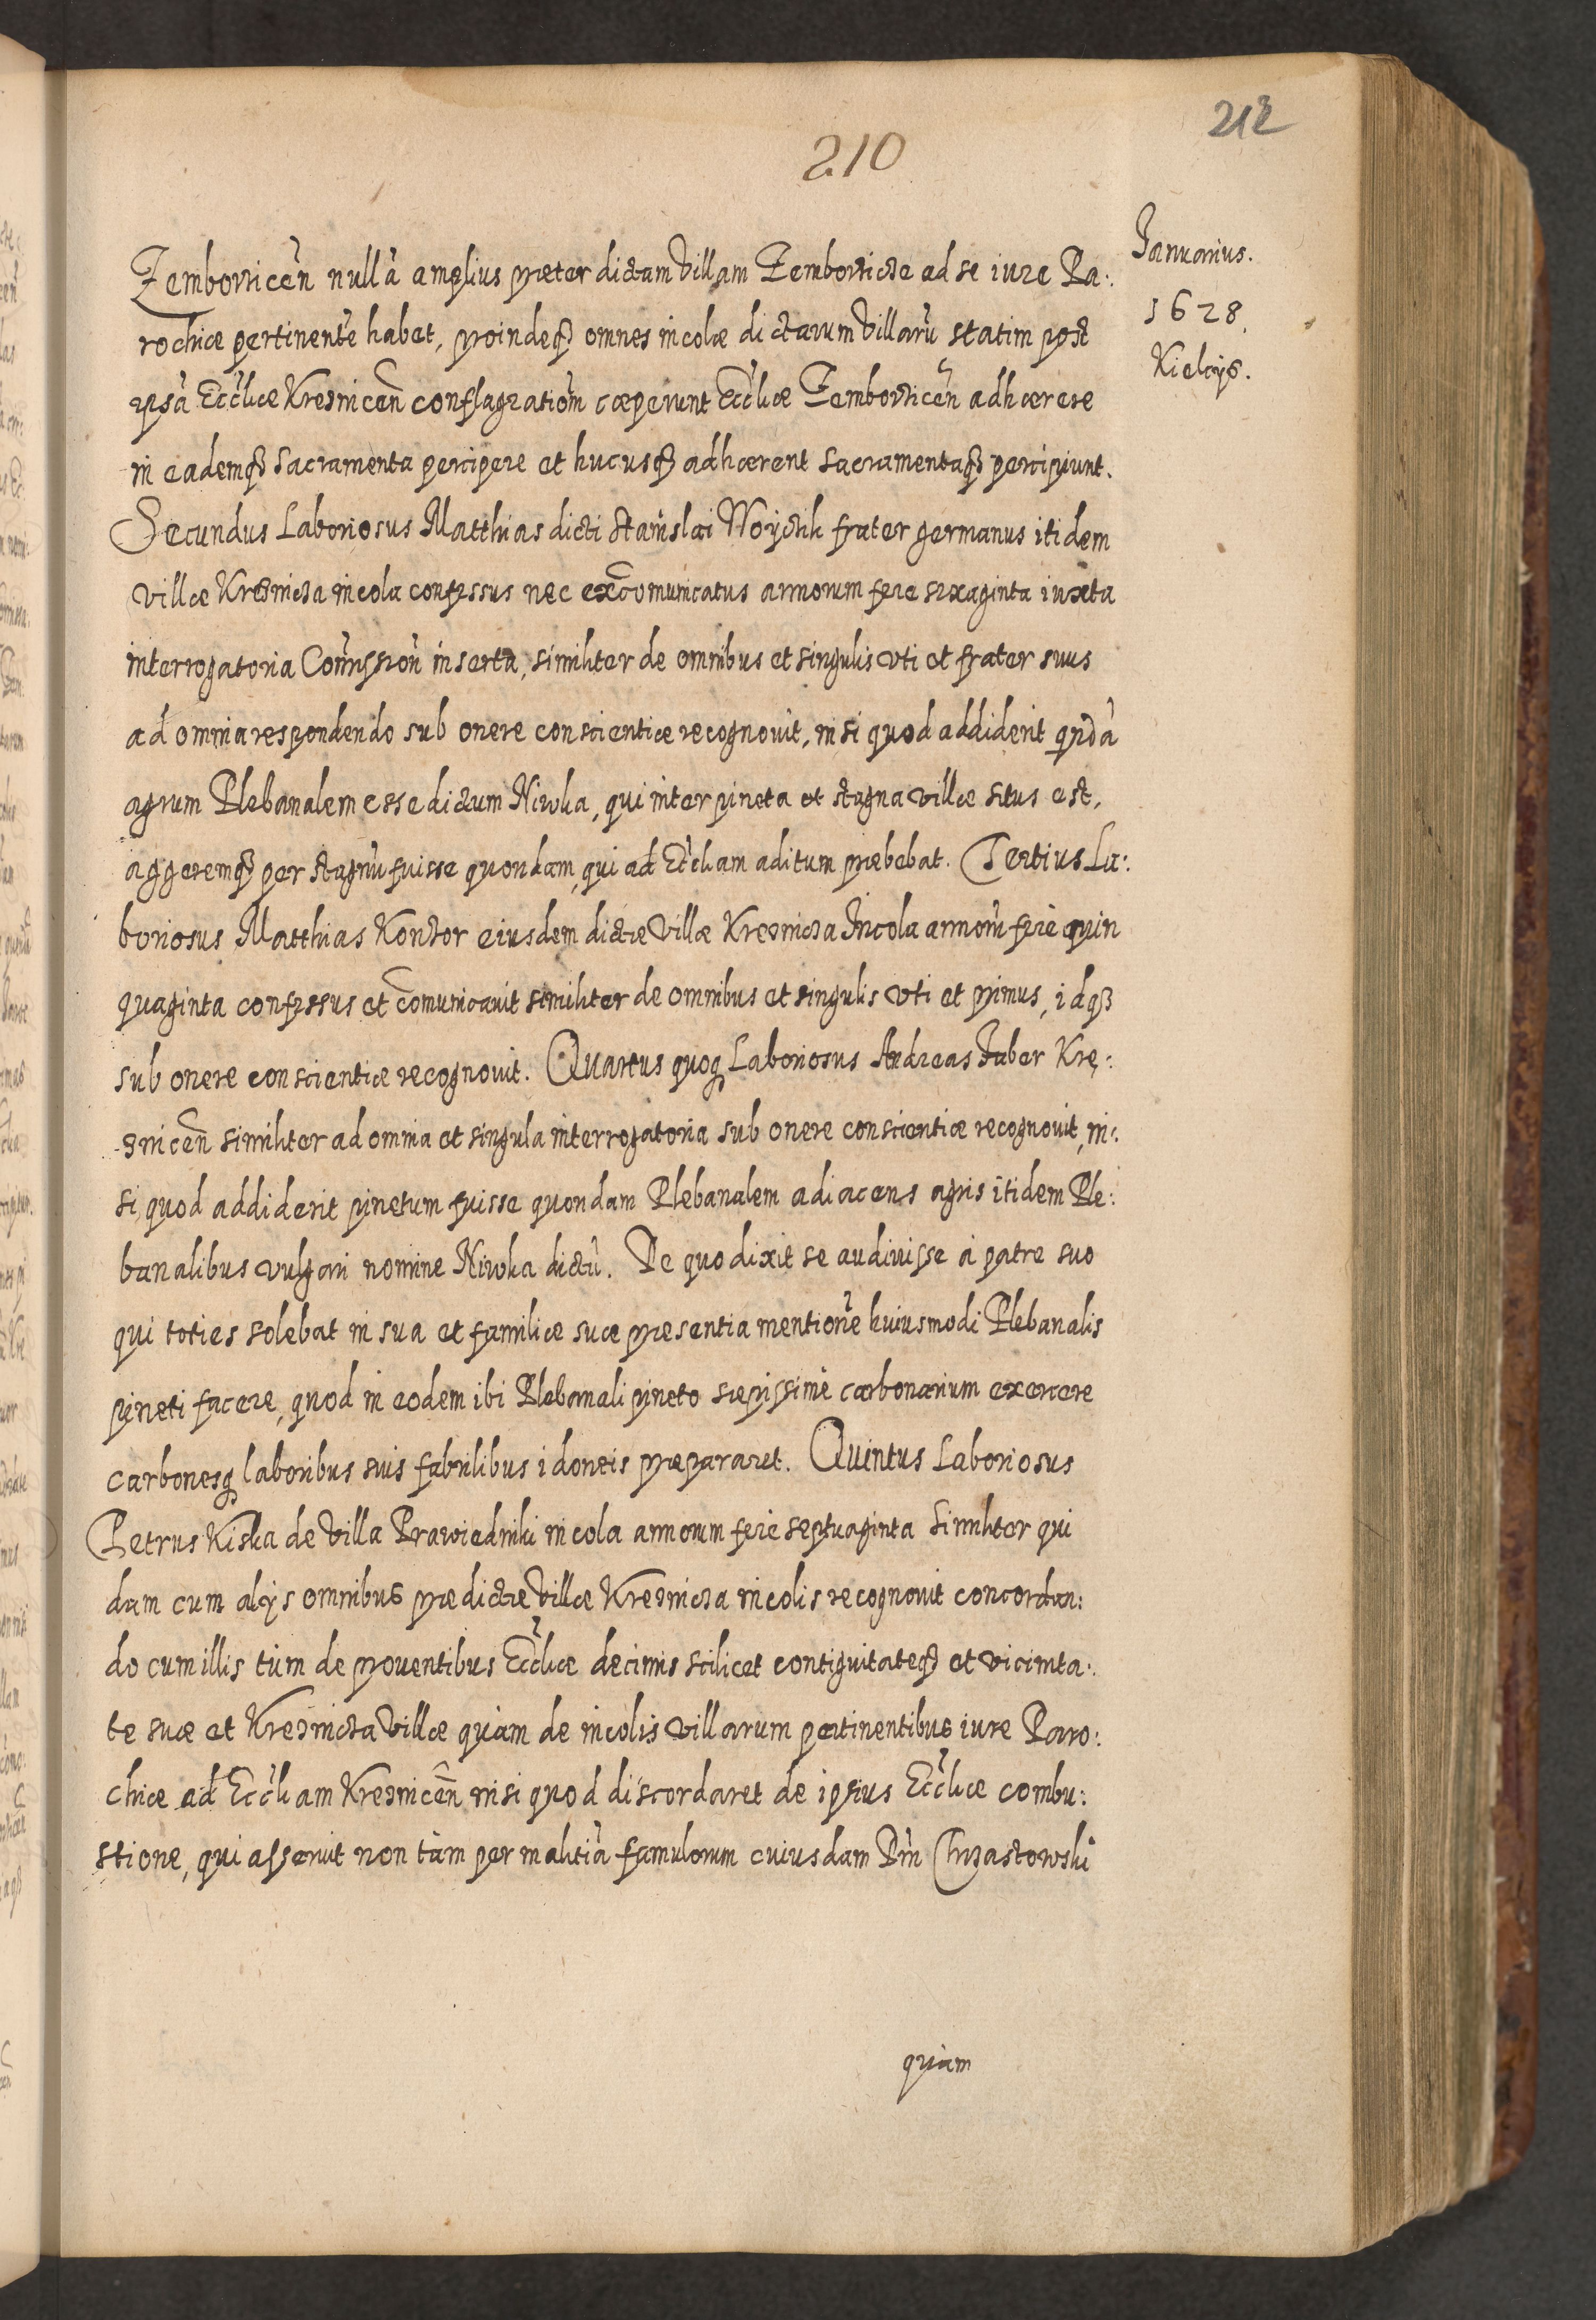 212
210
Januarius.
1628.
Kielcijs.
Zemboricen̄ nullā amplius præter dictam Villam Zemboricze ad se iure Pa:
rochiæ pertinentē habet, proindeq3 omnes incolæ dictarum Villarū statim post
ipsā Eccl̄iæ Kresnicen̄ conflagratiōm cæperunt Eccl̄iæ Zemboricen̄ adhærere
in eademq3 sacramenta percipere et hucusq3 adhærent sacramentaq3 percipiunt.
Secundus Laboriosus Matthias dicti Stanislai Woyczik frater germanus itidem
villæ Kresnicza incola confessus nec excōmunicatus annorum fere sexaginta iuxta
interrogatoria Com̄ission̄ inserta, similiter de omnibus et singulis vti et frater suus
ad omnia respondendo sub onere conscientiæ recognouit, nisi quod addiderit qndā
agrum Plebanalem esse dictum Niwka, qui inter pineta et stagna villæ situs est,
aggeremq3 per stagnū fuisse quondam, qui ad Eccl̄iam aditum præbebat. Tertius La:
boriosus Matthias Kontor eiusdem dictæ Villæ Kresnicza Incola annorū ferè quin
quaginta confessus et cōmunicauit similiter de omnibus et singulis vti et primus, idq3
sub onere conscientiæ recognouit. Quartus quoq3 Laboriosus Andreas Faber Kre:
snicen̄ similiter ad omnia et singula interrogatoria sub onere conscientiæ recognouit, ni:
si, quod addiderit pinetum fuisse quondam Plebanalem adiacens agris itidem Ple:
banalibus vulgari nomine Niwka dictū. De quo dixit se audiuisse à patre suo
qui toties solebat in sua et familiæ suæ præsentia mentionē huiusmodi Plebanalis
pineti facere, quod in eodem ibi Plebanali pineto sæpissimè carbonarium exercere
carbonesq3 laboribus suis fabrilibus idoneis præpararet. Quintus Laboriosus
Petrus Kiska de Villa Prawiedniki incola annorum ferè septuaginta similiter qui
dam cum alijs omnibus prædictæ Villæ Kresnicza incolis recognouit concordan:
do cum illis tùm de prouentibus Eccl̄iæ decimis scilicet contiguitateq3 et vicinita:
te suæ et Kresnicza Villæ quàm de incolis villarum pertinentibus iure Paro:
chiæ ad Eccl̄iam Kresnicen̄ nisi quod discordaret de ipsius Eccl̄iæ combu:
stione, qui asseruit non tàm per malitiā famulorum cuiusdam Dn̄i Chrzastowski
quàm